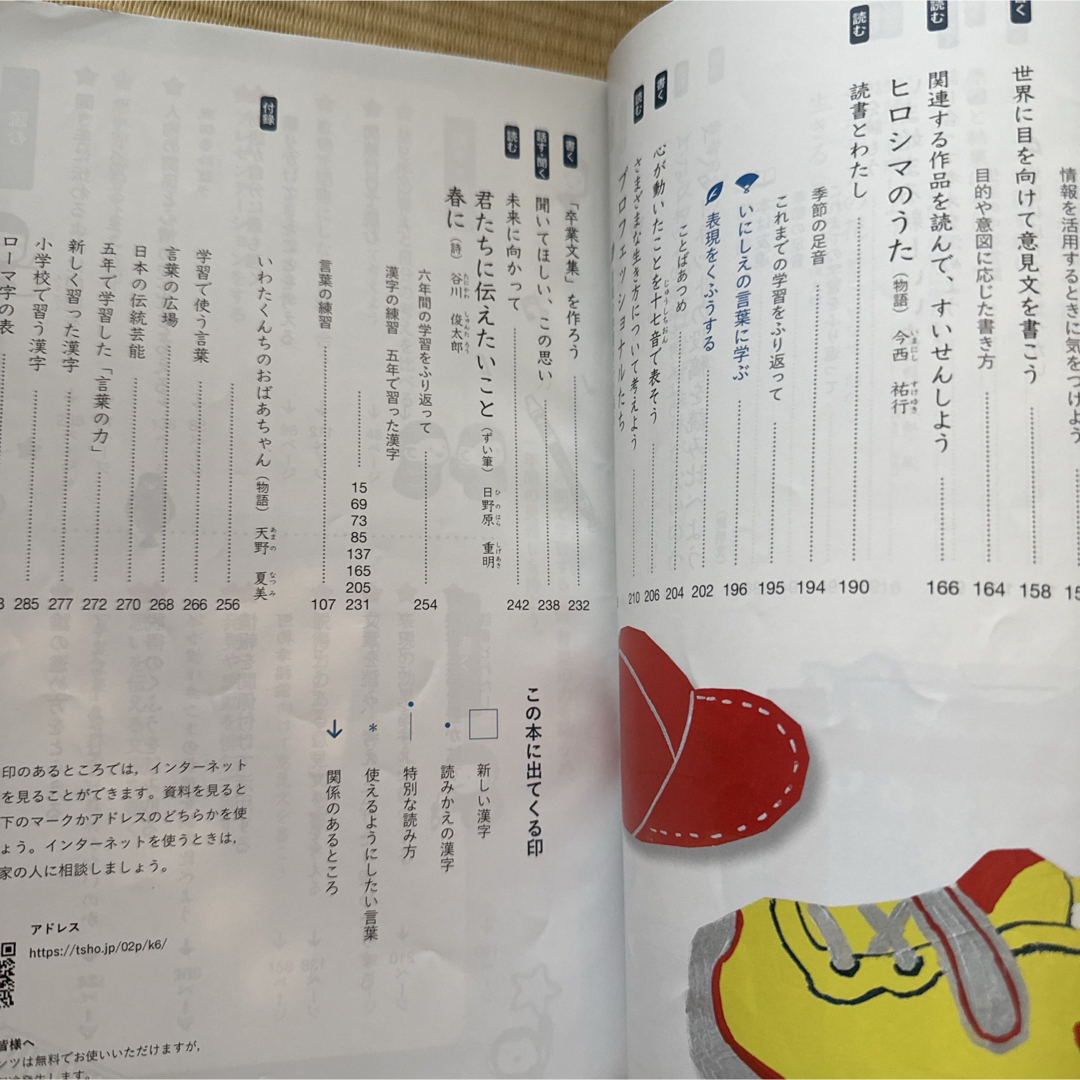 情報を活用するときに気をつけよう
世界に目を向けて意見文を書こう 158
目的や意図に応じた書き方 164
読む
関連する作品を読んで、すいせんしよう
ヒロシマのうた（物語） 今西 祐行 166
いまにし すけゆき
読む
読書とわたし 190
季節の足音 194
これまでの学習をふり返って 195
いにしえの言葉に学ぶ 196
表現をくふうする 202
ことばあつめ 204
書く
心が動いたことを十七音で表そう 206
じゅうしちおん
読む
さまざまな生き方について考えよう 210
プロフェッショナルたち
書く
「卒業文集」を作ろう 232
話す・聞く
聞いてほしい、この思い 238
読む
未来に向かって 242
君たちに伝えたいこと（ずい筆） 日野原 重明
ひのはら しげあき
春に（詩） 谷川 俊太郎
たにかわ しゅんたろう
六年間の学習をふり返って 254
漢字の練習 五年で習った漢字
15
69
73
85
137
165
205
231
言葉の練習 107
付録
いわたくんちのおばあちゃん（物語） 天野 夏美
あまの なつみ
256
学習で使う言葉 266
言葉の広場 268
日本の伝統芸能 270
五年で学習した「言葉の力」 272
新しく習った漢字 277
小学校で習う漢字 285
ローマ字の表
この本に出てくる印
新しい漢字
読みかえの漢字
特別な読み方
* 使えるようにしたい言葉
↓ 関係のあるところ
印のあるところでは，インターネット
を見ることができます。資料を見ると
下のマークかアドレスのどちらかを使
ょう。インターネットを使うときは，
家の人に相談しましょう。
アドレス
https://tsho.jp/02p/k6/
皆様へ
ンツは無料でお使いいただけますが，
発生します。